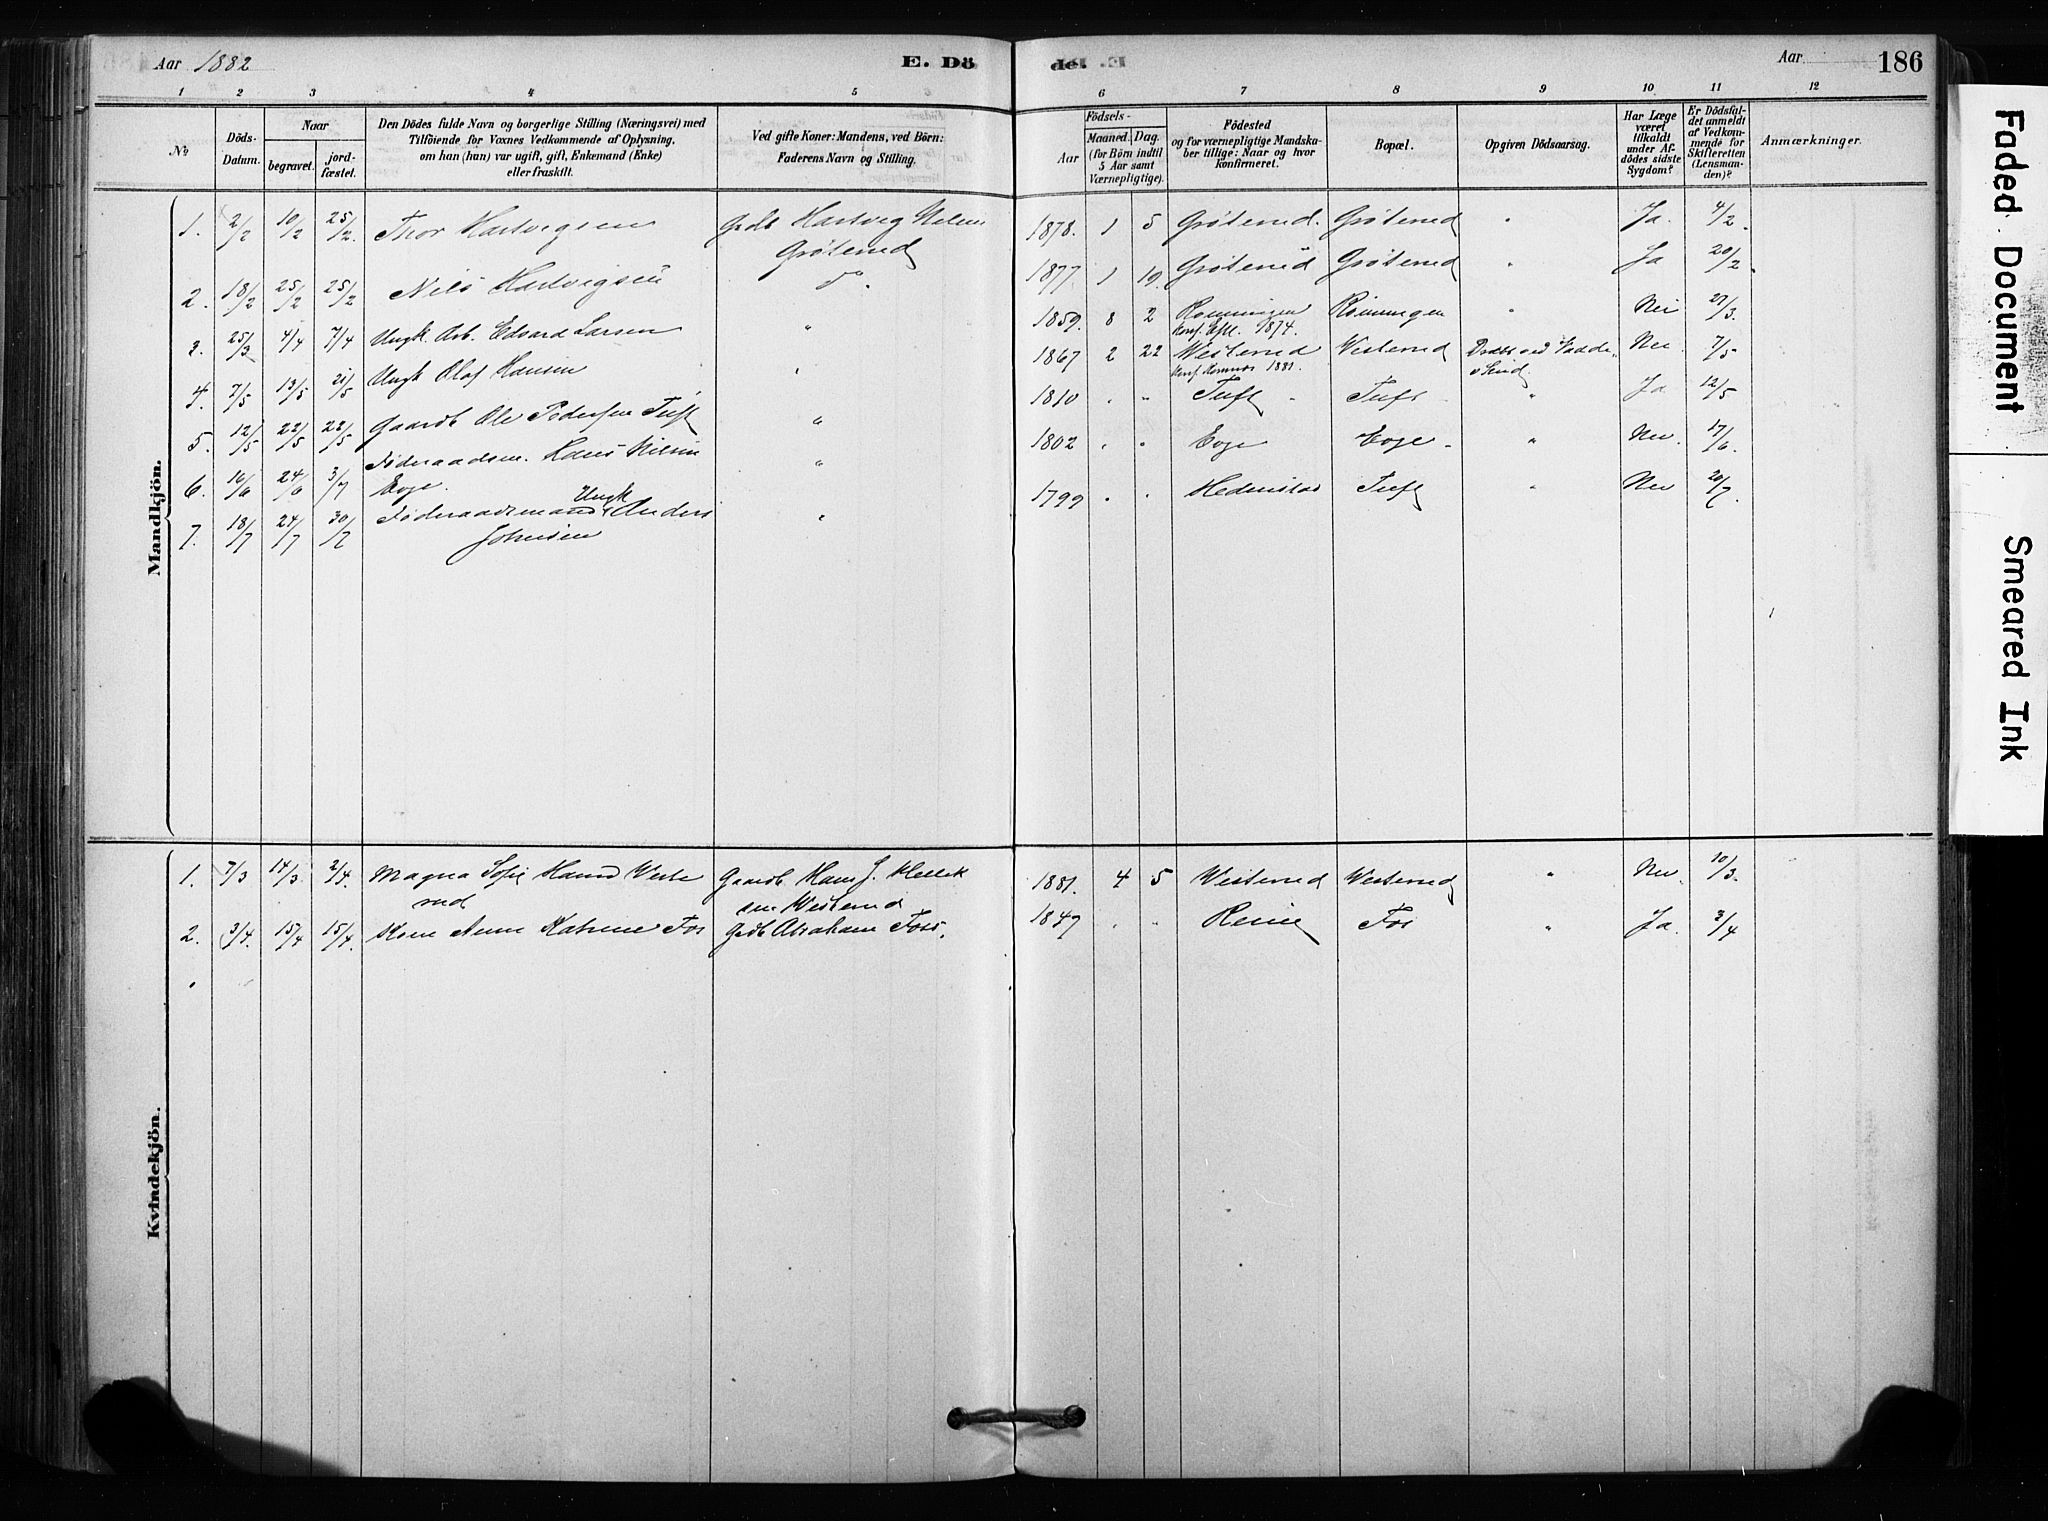 Aar 1882
E. Dö
de.
Aar
186
1 2 3 4 5 6 7 8 9 10 11 12
No
Döds-Datum.
Naar
begravet.
jord-fæstet.
Den Dödes fulde Navn og borgerlige Stilling (Næringsvei) med
Tilföiende for Voxnes Vedkommende af Oplysning,
om han (hun) var ugift, gift, Enkemand (Enke)
eller fraskilt.
Ved gifte Koner: Mandens, ved Börn:
Faderens Navn og Stilling.
Födsels-
Aar
Maaned. Dag.
(for Börn indtil
5 Aar samt
Værnepligtige).
Födested
og for værnepligtige Mandska-
ber tillige: Naar og hvor
konfirmeret.
Bopæl.
Opgiven Dödsaarsag.
Har Læge
været
tilkaldt
under Af-
dödes sidste
Sygdom?
Er Dödsfal-
det anmeldt
af Vedkom-
mende for
Skifteretten
(Lensman-
den)?
Anmærkninger.
Mandkjön.
1. 2/2 10/2 25/2. Thor Hartvigsen Grdb Hartvig Nilsen 1878. 1 5 Gröterud. Gröterud " Ja. 4/2.
Gröterud
2. 18/2 25/2 25/2 Nils Hartvigsen do. 1877. 1 19. Gröterud Gröterud " Ja 20/2.
3. 25/3 4/4 7/4 Ungk. Arb. Edvard Larsen " 1859. 8 2 Romningen Romningen " Nei 27/3.
Konf. Efl. 1874.
4. 7/5 13/5 21/5 Ungk Olaf Hansen " 1867 2 22 Westerud Westerud Nei 7/5
Konf. Komnes 1881.
5. 12/5 22/5 22/5 Gaardb Ole Pedersen Tuft " 1810 " " Tuft Tuft " Ja 12/5
6. 16/6 24/6 3/7 Föderaadsm. Hans Nilsen " 1802 " " Evge Evge " Nei. 17/6.
Evge.
7. 18/7 24/7 30/7 Föderaadsmand Ungk Anders " 1799 " " Hedenstad Tuft " Nei 20/7.
Johnsen
Kvindekjön.
1. 7/3 14/3. 2/4. Magna Sofie Hansd Weste Gaardb. Hans J. Hellik 1881. 4 5 Westerud Westerud " Nei. 10/3.
rud sen Westerud
2. 3/4. 15/4 15/4. Kone Anne Katrine Fos Grdb Abraham Foss. 1849 " " Fos " Ja. 3/4
Faded Document
Smeared Ink